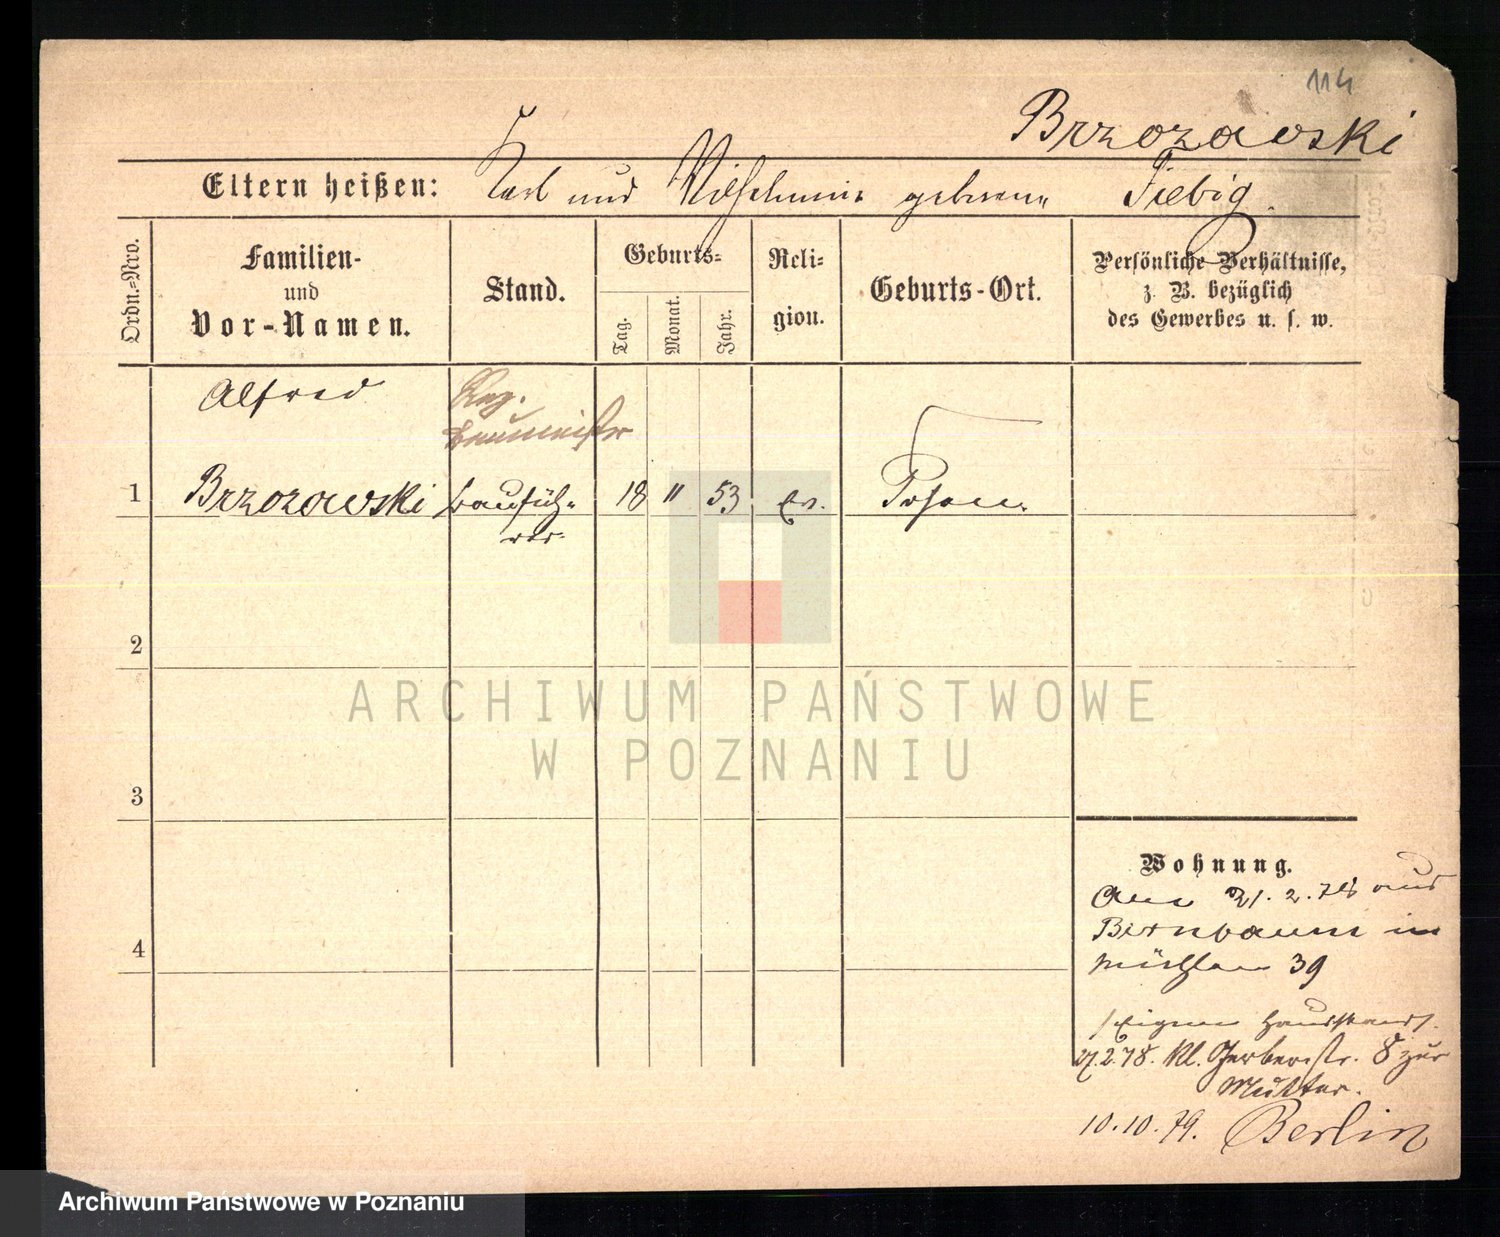 114
Brzozowski
Eltern heißen: Karl und Wilhelmine geborene Fiebig.
Ordn.-Nro.
Familien-
und
Vor-Namen.
Stand.
Geburts-
Tag.
Monat.
Jahr.
Reli-
gion.
Geburts-Ort.
Persönliche Verhältnisse,
z. B. bezüglich
des Gewerbes u. s. w.
Alfred
Reg.
Baumeister
1
Brzozowski
Baufüh-
rer
18
11
53
Ev.
Posen
2
3
4
Wohnung.
Am 21.2.78 aus
Birnbaum in
Mühlen 39
Eignen Hausstand.
27.2.78. Kl. Gerberstr. 8 zur
Mutter.
10.10.79. Berlin
ARCHIWUM PAŃSTWOWE
W POZNANIU
Archiwum Państwowe w Poznaniu